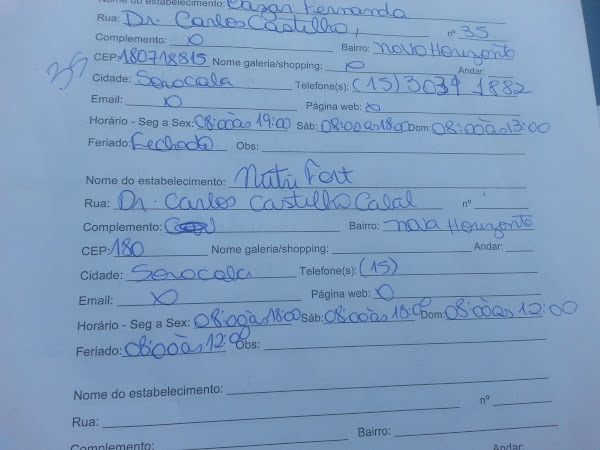 Nome do estabelecimento: Bazar Fernanda
Rua: Dr. Carlos Castilho, nº 35
Complemento: x Bairro: novo Horizonte
CEP: 180718815 Nome galeria/shopping: x Andar:
Cidade: Sorocaba Telefone(s): (15) 3034 1882
Email: x Página web: x
Horário - Seg a Sex: 08:00 às 19:00 Sáb: 08:00 às 18:00 Dom: 08:00 às 13:00
Feriado: Fechado Obs:
Nome do estabelecimento: Nutri Fort
Rua: Dr. Carlos Castilho Cabal nº
Complemento: Bairro: novo Horizonte
CEP: 180 Nome galeria/shopping: Andar:
Cidade: Sorocaba Telefone(s): (15)
Email: x Página web: x
Horário - Seg a Sex: 08:00 às 18:00 Sáb: 08:00 às 18:00 Dom: 08:00 às 12:00
Feriado: 08:00 às 12:00 Obs:
Nome do estabelecimento:
Rua: nº
Complemento: Bairro:
Andar: